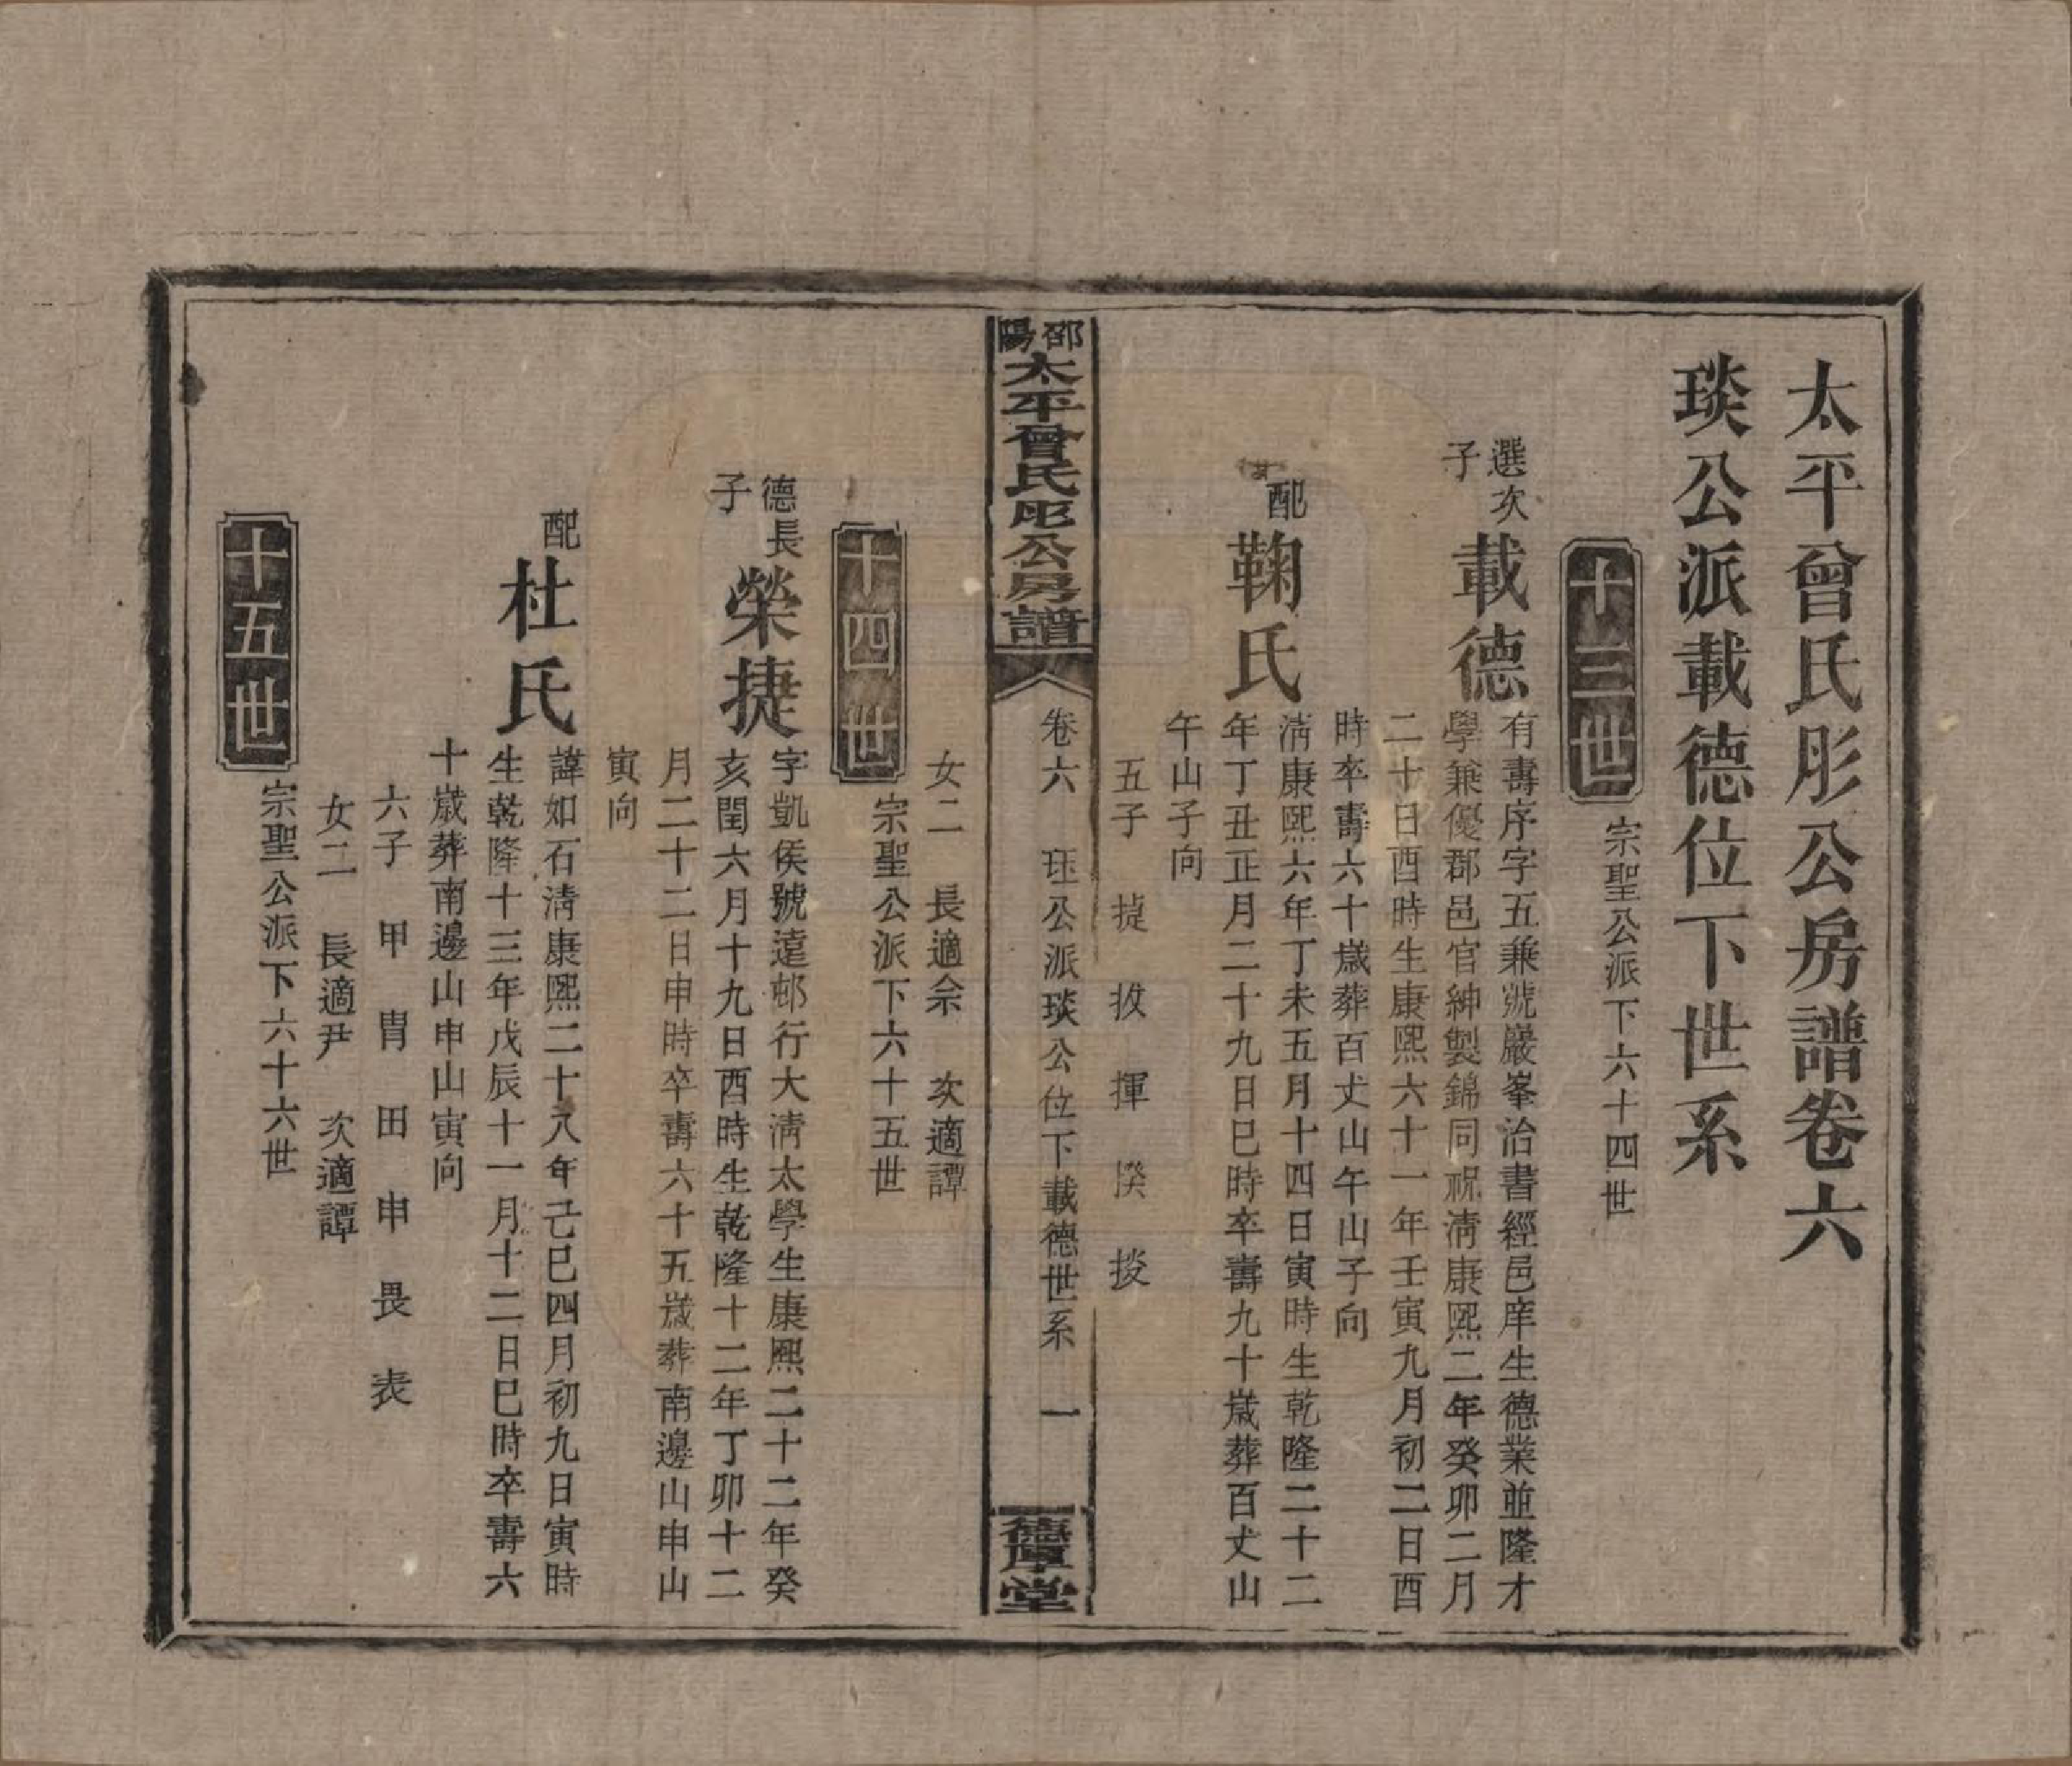 太平曾氏彤公房譜卷六
琰公派載德位下世系
十三世
宗聖公派下六十四世
選次子
載德
有壽序字五兼號巖峯治書經邑庠生德業並隆才
學兼優郡邑官紳製錦同祝淸康熙二年癸卯二月
二十日酉時生康熙六十一年壬寅九月初二日酉
時卒壽六十歲葬百丈山午山子向
配
鞠氏
淸康熙六年丁未五月十四日寅時生乾隆二十二
年丁丑正月二十九日巳時卒壽九十歲葬百丈山
午山子向
五子 㨗 㧞 揮 揆 掞
邵陽
太平曾氏彤公房譜
卷六 珏公派琰公位下載德世系 一
德厚堂
女二 長適佘 次適譚
十四世
宗聖公派下六十五世
德長子
榮捷
字凱侯號遠邨行大淸太學生康熙二十二年癸
亥閏六月十九日酉時生乾隆十二年丁卯十二
月二十二日申時卒壽六十五歲葬南邊山申山
寅向
配
杜氏
諱如石淸康熙二十八年己巳四月初九日寅時
生乾隆十三年戊辰十一月十二日巳時卒壽六
十歲葬南邊山申山寅向
六子 甲 胄 田 申 畏 表
女二 長適尹 次適譚
十五世
宗聖公派下六十六世